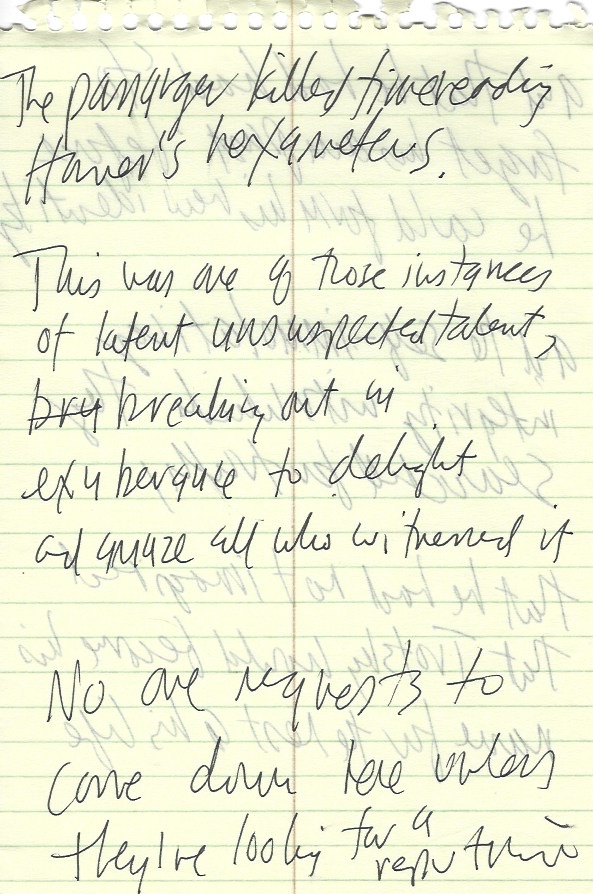 The passenger killed time reading
Homer's hexameters.
This was one of those instances
of latent unsuspected talent,
bru breaking out in
exuberance to delight
and amaze all who witnessed it
No one requests to
come down here unless
they're looking for a
reputation